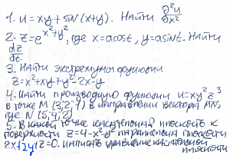 1. u = xy + sin(x+y). Найти ∂²u/∂x²
2. z = e^(x²+y²), где x = acost, y = asint. Найти
dz/dt
3. Найти экстремумы функции
z = x² + xy + y² - 2x - y
4. Найти производную функции u = xy²z³
в точке M(3,2,1) в направлении вектора MN,
где N(5,4,2)
5. В какой точке касательная плоскость к
поверхности z = 4 - x² - y² параллельна плоскости
2x + 2y + z = 0. Написать уравнение касательной
плоскости